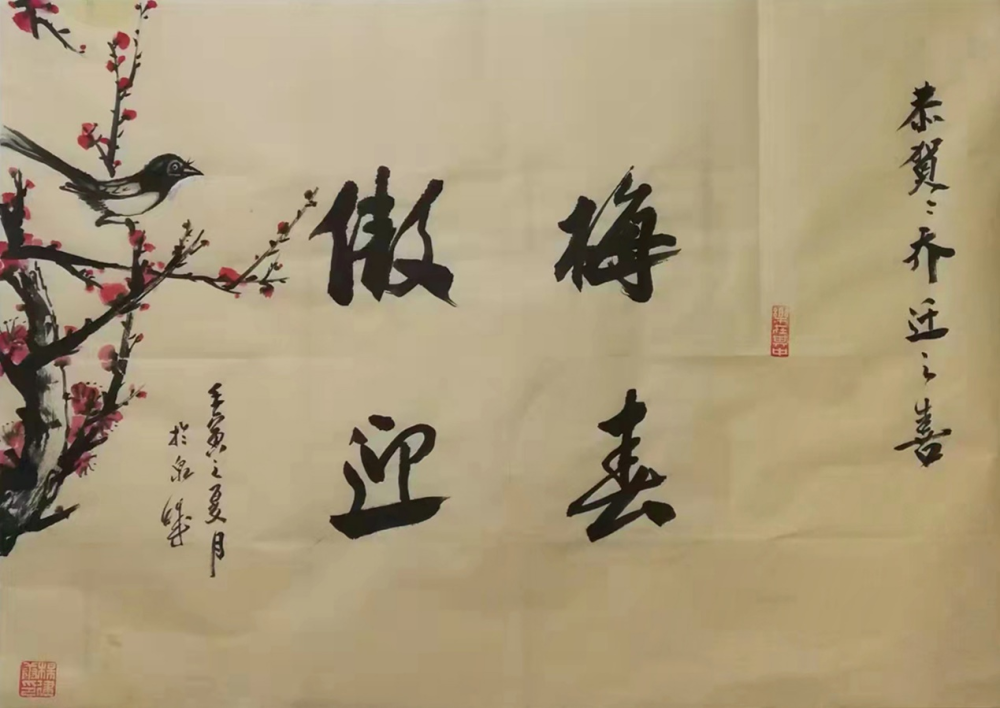 恭賀:乔迁之喜
傲梅
迎春
壬寅之夏月
於泉城